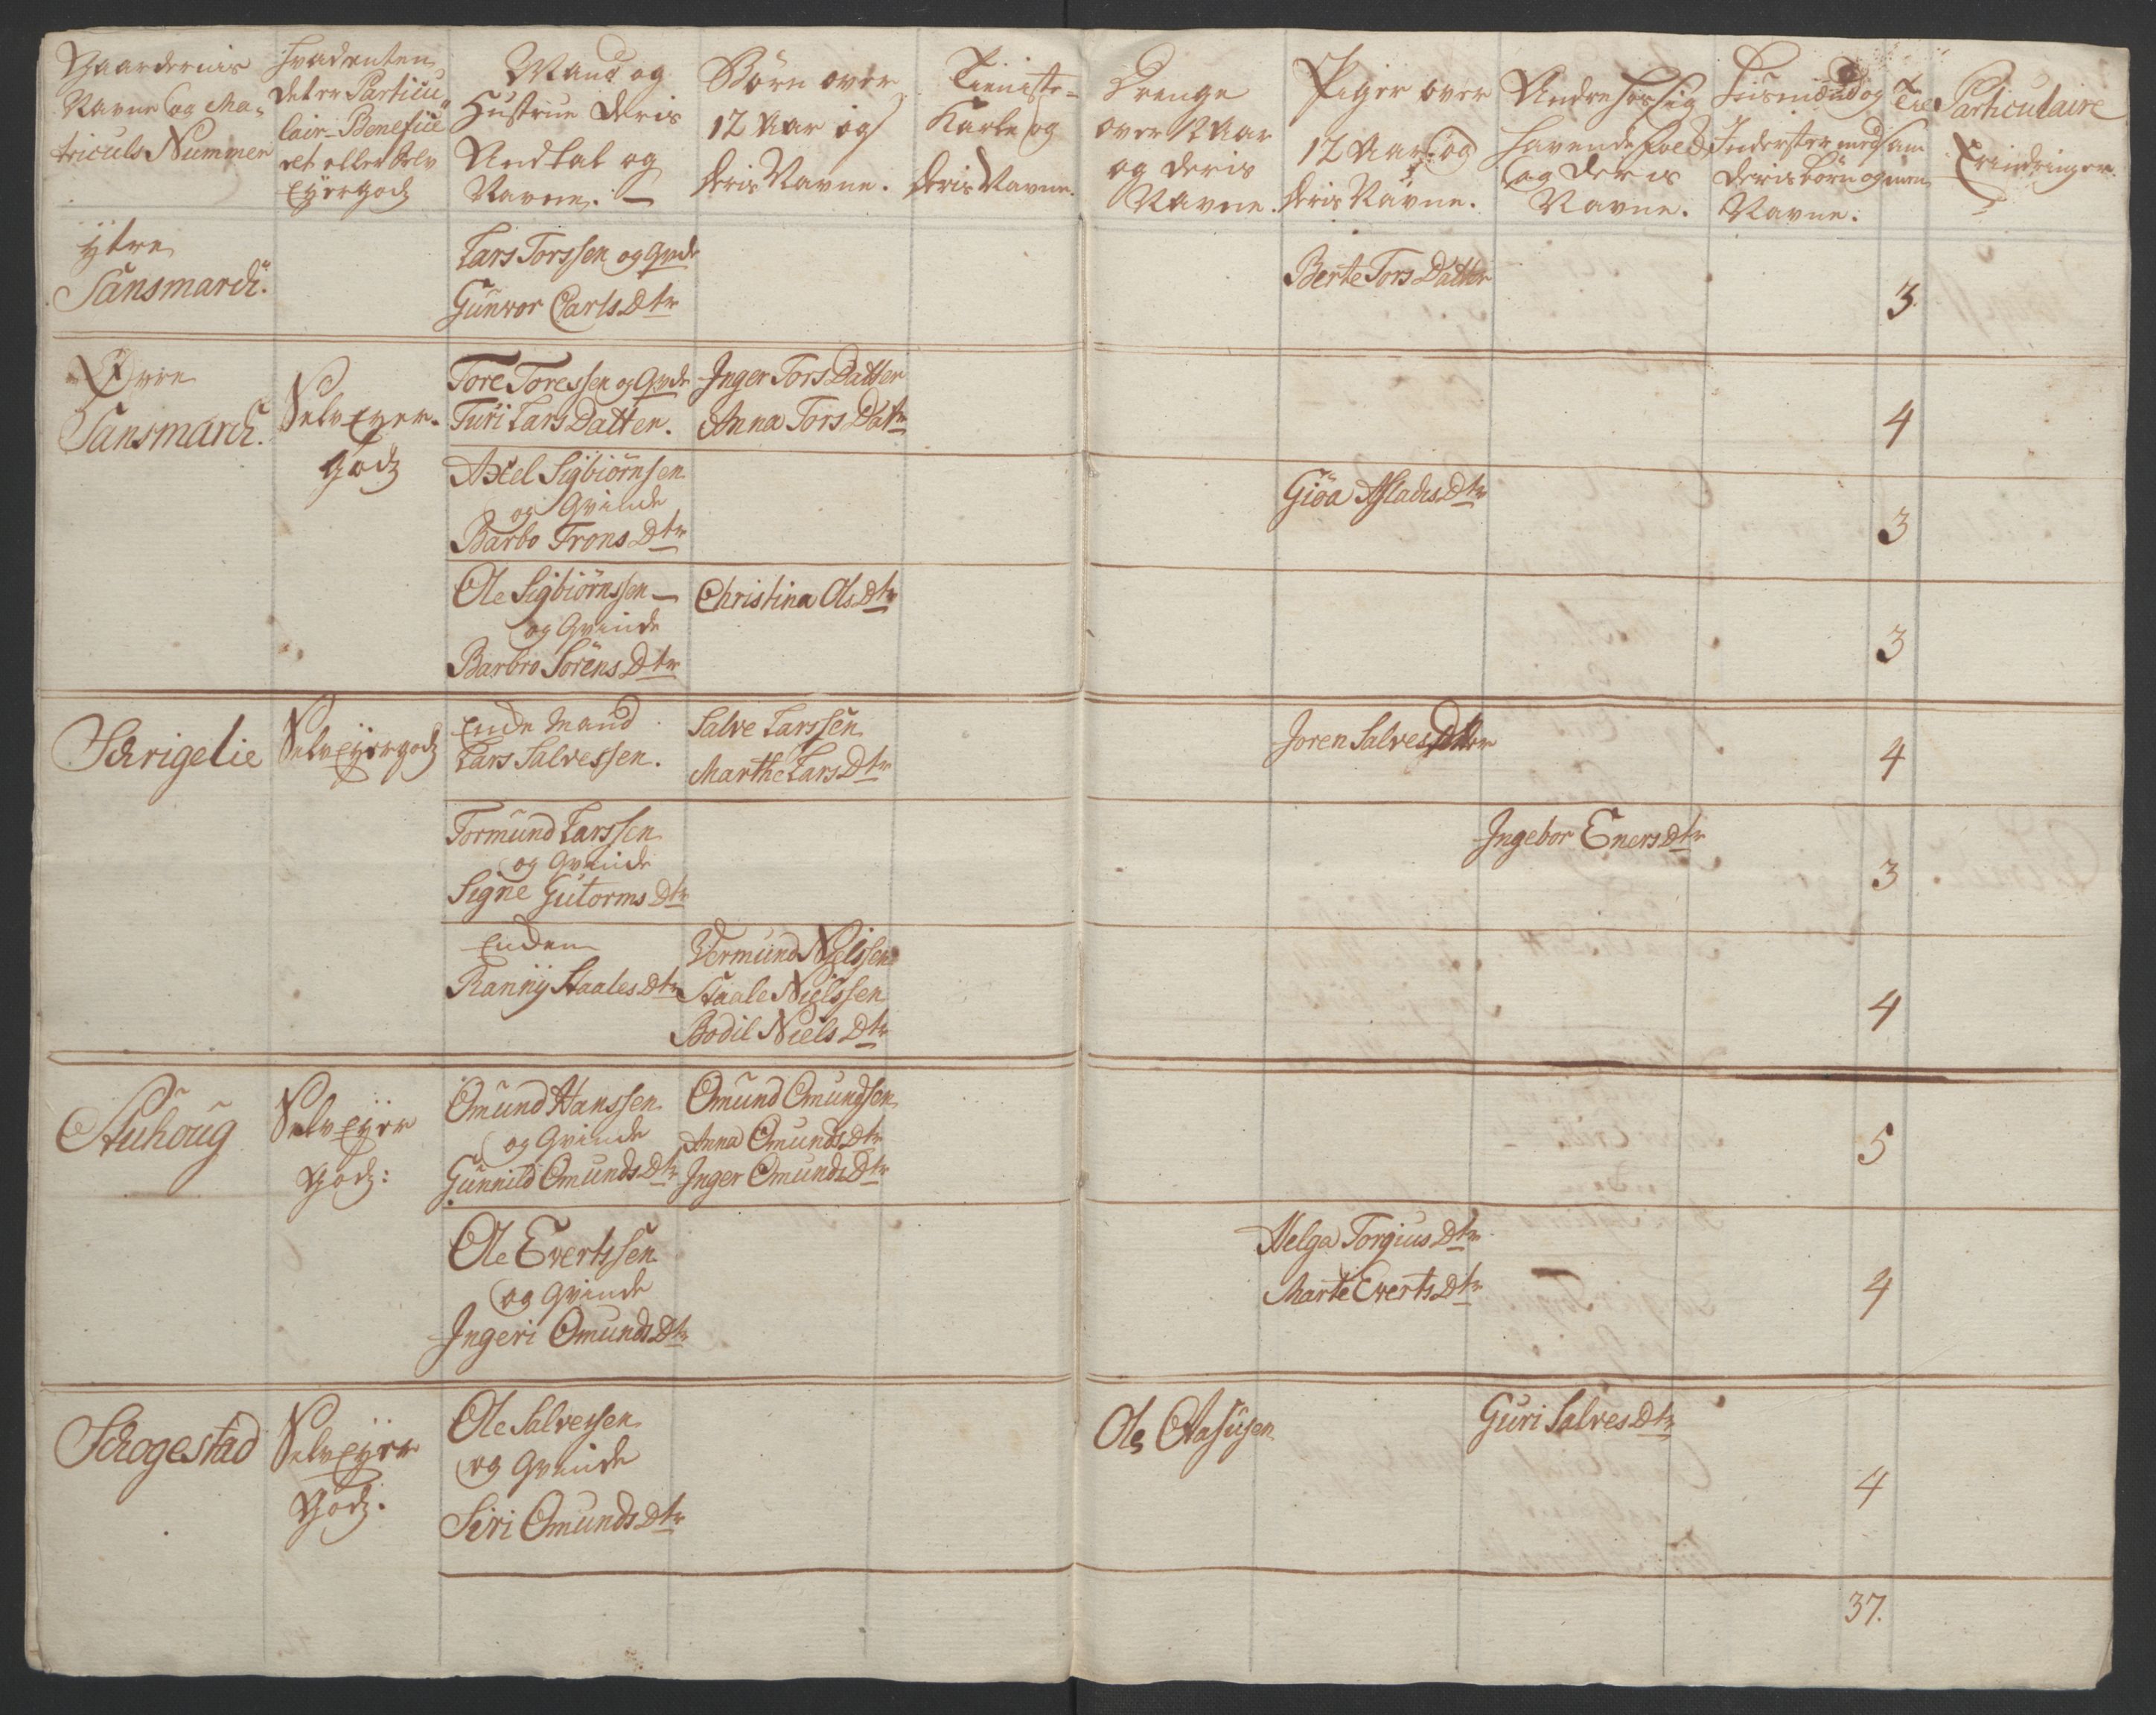 Gaardernis
Navne og Ma-
triculs Nummer
Hvad enten
det er Particu-
lair-Benefice-
ret eller Selv
Eyergodz
Mand og
Hustrue deris
Andtal og
Navne.
Børn over
12 Aar og
deris Navne.
Tieniste-
Karle og
deris Navne.
Drenge
over 12 Aar
og deris
Navne.
Piger over
12 Aar og
deris Navne.
Andre hos sig
havende Folk
og deris
Navne.
Huusmænd og
Inderster med sam
deris børn og
Navne.
Particulaire
Erindringer.
ÿtre
Sånsmarch.
Lars Torssen og Qvde
Gunvor Carls Dtr
Berte Tors Datter
3.
Øvre
Sansmarch.
Selv Eyer-
Godz
Tore Toressen og Qvde
Turi Lars Datter.
Inger Tors Datter
Anna Tors Datr
4
Axel Sigbiörnsen
og Qvinde
Barbo Trons Dtr
Giöa Asladis Dtr
3
Ole Sigbiörnssen
og Qvinde
Barbro Sörens Dtr
Christina Ols Dtr
3
Schrigelie
Selv Eÿergodz
Ende Mand
Lars Salvessen.
Salve Larssen
Marthe Lars Dtr
Joren Salves Dtter
4
Tormund Larssen
og Qvinde
Signe Gutorms Dtr
Ingebor Eners Dtr
3
Enden
Rannÿ Staales Dtr
Vermund Nielssen
Staale Nielssen
Bodil Niels Dtr
4
Stuhoug
Selv Eÿer
Godz:
Omund Hanssen
og Qvinde
Gunnild Omunds Dtr
Omund Omundsen
Anna Omunds Dtr
Inger Omunds Dtr
5
Ole Evertssen
og Qvinde
Ingeri Omunds Dtr
Helga Torgius Dtr
Marte Everts Dtr
4
Schogestad
Selv Eÿer
Godz.
Ole Salvessen
og Qvinde
Siri Omunds Dtr
Ole Aasusen
Guri Salves Dtr
4
37.